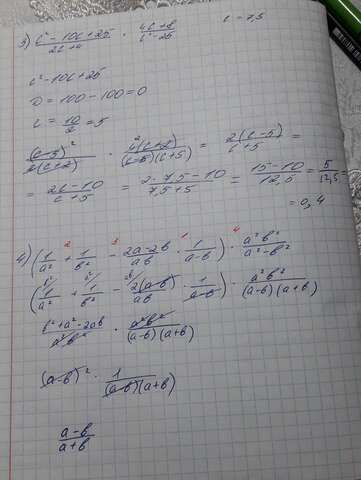 3) (c² - 10c + 25)/(2c + 4) · (4c + 8)/(c² - 25)    c - 7,5
c² - 10c + 25
D = 100 - 100 = 0
c = 10/2 = 5
(c - 5)²/2(c + 2) · 4(c + 2)/(c - 5)(c + 5) = 2(c - 5)/(c + 5) =
= (2c - 10)/(c + 5) = (2 · 7,5 - 10)/(7,5 + 5) = (15 - 10)/12,5 = 5/12,5 =
= 0,4
2 3 1 4
4) (1/a² + 1/b² - (2a - 2b)/ab · 1/(a - b)) · a²b²/(a² - b²)
(1/a² + 1/b² - 2(a - b)/ab · 1/(a - b)) · a²b²/(a - b)(a + b)
(b² + a² - 2ab)/a²b² · a²b²/(a - b)(a + b)
(a - b)² · 1/(a - b)(a + b)
(a - b)/(a + b)